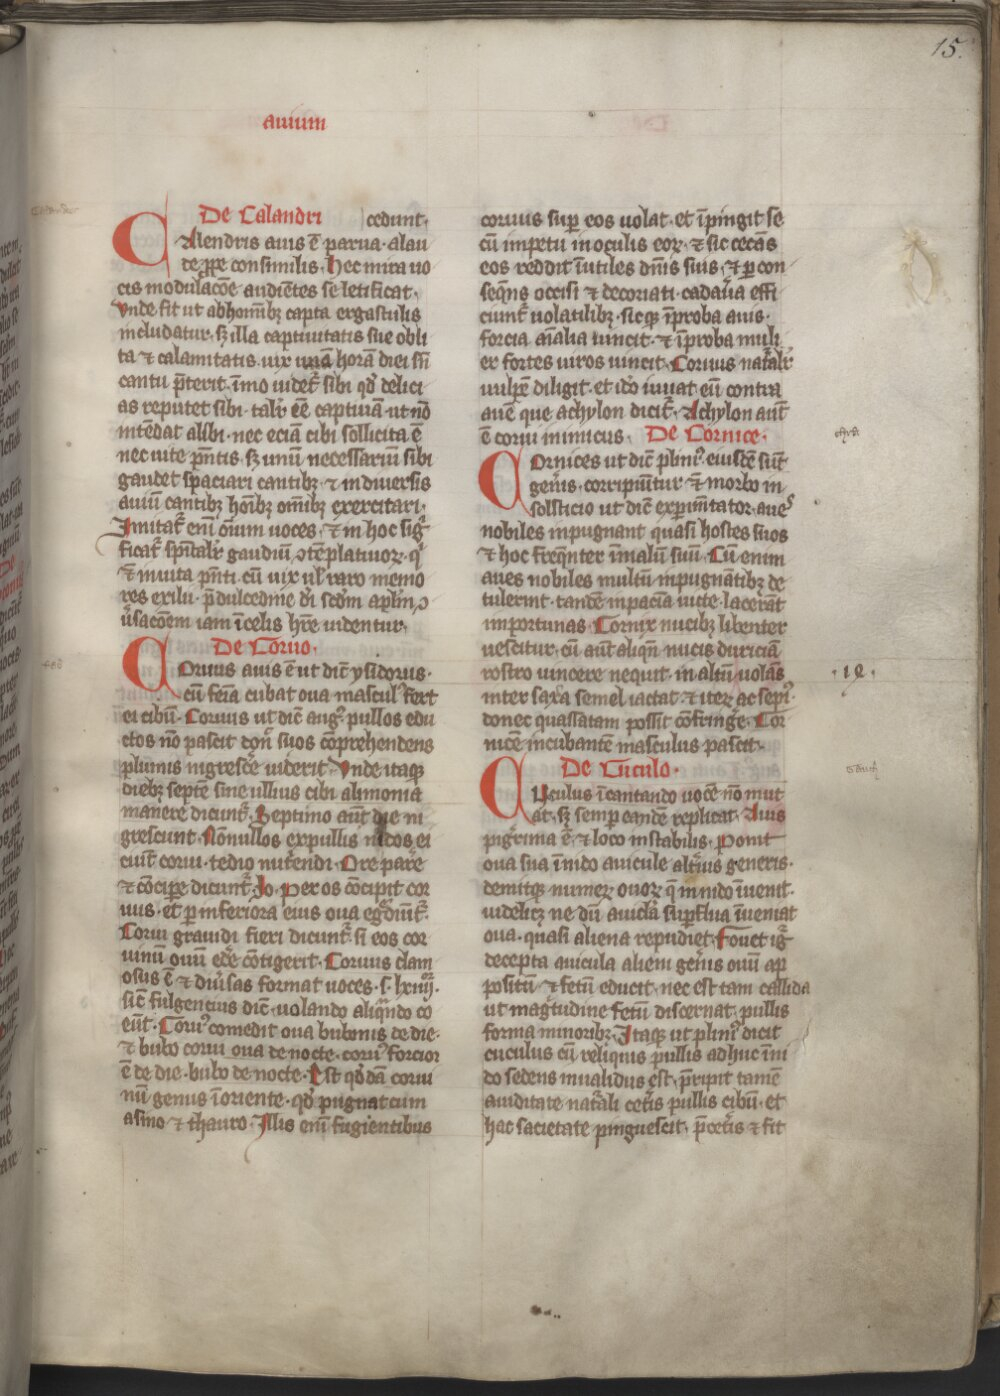 15.
auium
De Calandri cedunt.
CAlendris auis ē parua. alau
de ꝓpe consimilis. Hec mira uo
cis modulacōe audiētes se letificat.
Vnde fit ut ab homībꝫ capta ergastulis
includatur. sꝫ illa captiuitatis sue obli
ta ⁊ calamitatis. uix unā horā diei sñ
cantu p̄terit. īmo uidet᷑ sibi qd̓ delici
as reputet sibi. talr̄ eē captiuā. ut nō
intēdat alibi. nec eciā cibi sollicita ē
nec uite p̄ntis. sꝫ unū necessariū sibi
gaudet spaciari cantibꝫ. ⁊ in diuersis
auiū cantibꝫ hōībꝫ om̄ibꝫ exercitari.
Imitat᷑ eni oīum uoces. ⁊ in hoc sig̾
ficat᷑ sp̄italr̄ gaudiū ꝯtēplatiuoꝝ. q̾
⁊ in uita p̄nti. cū uix ul̓ raro memo
res exilii. p̄ dulcedine dī scd̄m apl̄m ꝯ
ūsacōem iam ī celis hr̄e uidentur.
De Coruo.
COruus auis ē ut dic̄t ysidorus.
cū feīa cubat oua mascul᷒ fert
ei cibū. Coruus ut dic̄t aug᷒. pullos edu
ctos nō pascit doñ suos cōprehendens
plumis nigrescē uiderit. Vnde itaqꝫ
diebꝫ septē sine ullius cibi alimonia
manere dicunt᷑. Septimo aūt die ni
grescunt. Nōnullos ex pullis nidos ei
ciūt corui. tedio nut̾endi. Ore par̄e
⁊ cōcip̄e dicunt᷑. Jo. per os cōcipit cor
uus. et per inferiora eius oua eg̾diūt᷑.
Corui grauidi fieri dicunt᷑. si eos cor
uinū ouū ed̄e cōtigerit. Coruus clam
osus ē ⁊ diūsas format uoces. s. lxiiij.
sic̄ fulgencius dic̄t. uolando aliqñdo co
eūt. Coru᷒ comedit oua bubonis de die.
⁊ bubo corui oua de nocte. coru᷒ forcior
ē de die. bubo de nocte. Est qd̓dā corui
nū genus ī oriente. qd̓ pugnat cum
asino ⁊ thauro. Illis eni fugientibus
coruus sup̄ eos uolat. et īpingit se
cū impetu in oculis eoꝝ. ⁊ sic cecās
eos reddit īutiles dn̄is suis. ⁊ per con
seqn̄s occisi ⁊ decoriati. cadaūa effi
ciunt᷑ uolatilibꝫ. sicqꝫ īproba auis.
forcia aīalia uincit. ⁊ īproba muli
er fortes uiros uincit. Coruus nat̾alr̄
uulpē diligit. et id̄o iuuat eū contra
auē que achylon dicit᷑. Achylon aūt
ē corui inimicus. De Cornice.
COrnices ut dic̄t plini᷒. eiusdē sūt
gen̄is. corripiūtur ⁊ morbo in
solsticio ut dic̄t experimētator. aues
nobiles inpugnant quasi hostes suos
⁊ hoc freqn̄ter ī malū suū. Cū enim
aues nobiles multū inpugnātibꝫ de
tulerint. tandē inpaciā uicte. lacerāt
importunas. Cornix nucibꝫ libenter
uescitur. cū aūt aliqñ nucis duriciā
rostro uincere nequit. in altū uolās
inter saxa semel iactat ⁊ iteꝝ ac sepi᷒.
donec quassatam possit cōfring̾e. Cor
nicē incubantē masculus pascit.
De Cuculo.
CUculus ī cantando uocē nō mut
at. sꝫ semper eandē replicat. Auis
pig̾rima ē ⁊ loco instabilis. Ponit
oua sua ī nido auicule alt̾ius generis.
demitqꝫ numeꝝ ouoꝝ q̄ in nido īuenit.
uidelicꝫ ne dū auicl̄a sup̄flua īueniat
oua. quasi aliena repudiet. Fouet ig̾
decepta auicula alieni gen̄is ouū ap
positū ⁊ fetū educit. nec est tam callida
ut mag̾tudine fetū discernat. pullis
forma minoribꝫ. Itaqꝫ ut plini᷒ dicit
cuculus cū reliquis pullis adhuc ī ni
do sedens inualidus est. p̄ripit tamē
auiditate nat̾ali cet̾is pullis cibū. et
hac sacietate pinguescit. p̄ cet̾is ⁊ fit